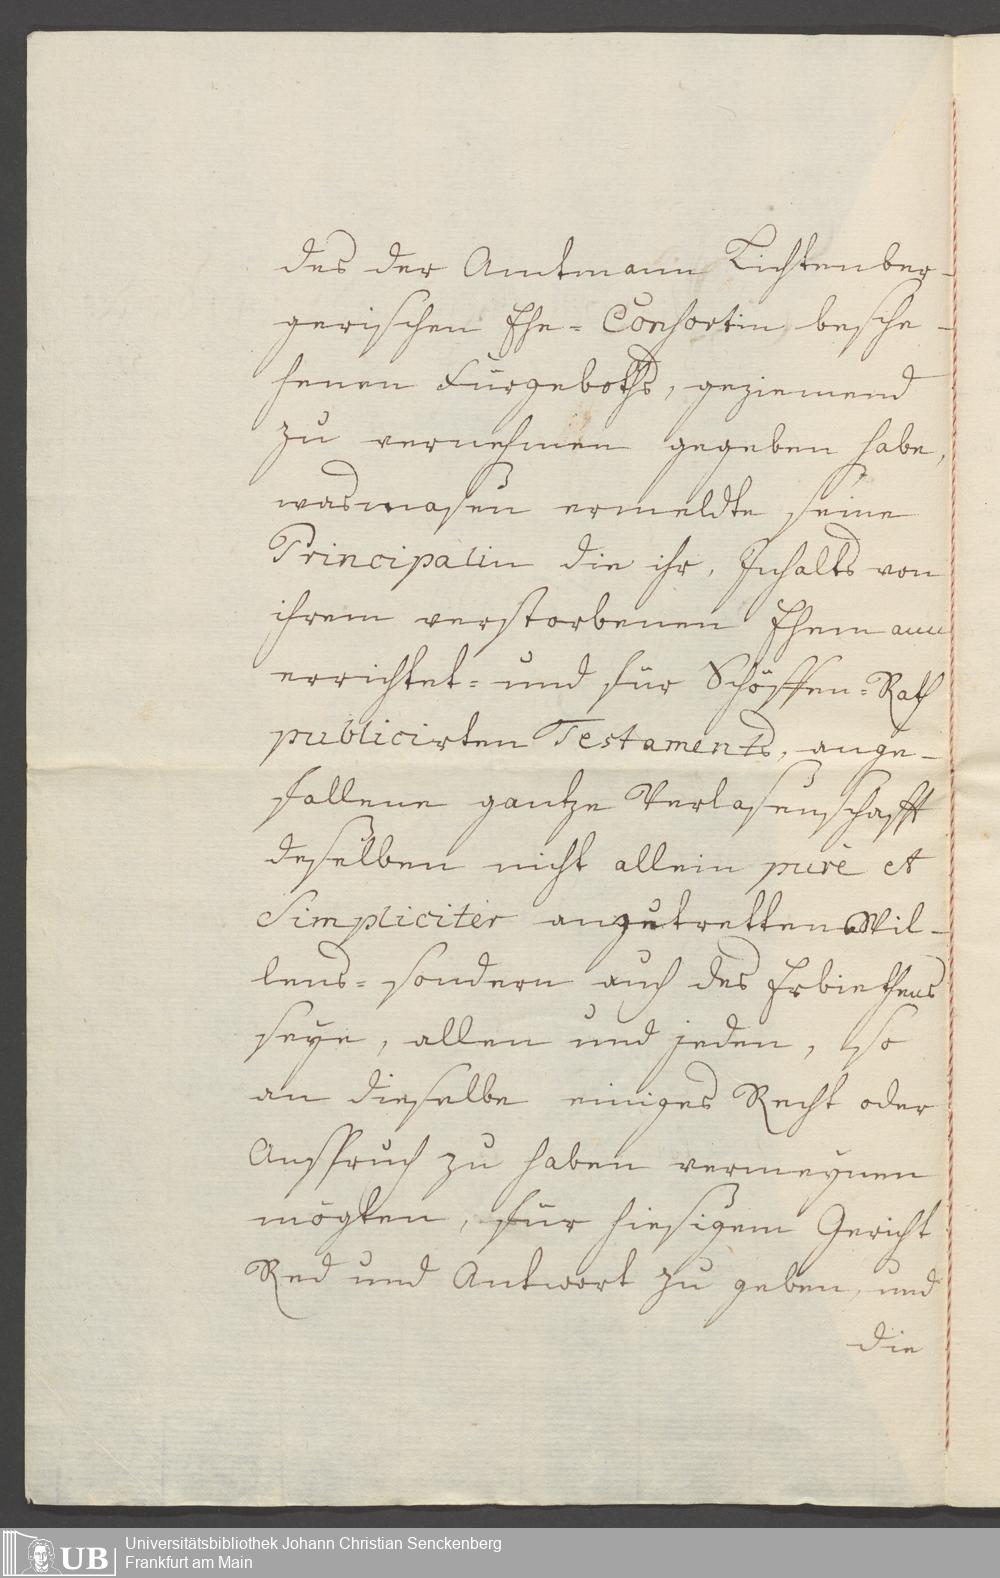 des der Amtmann Lichtenber-
gerischen Ehe-Consortin besche-
henen Fürgeboths, geziemend
zu vernehmen gegeben habe,
wasmasen ermeldte seine
Principalin die ihr, Inhalts von
ihrem verstorbenen Ehemann
errichtet- und für Schöffen-Rath
publicirten Testaments, ange-
fallene gantze Verlasenschafft
deselben nicht allein purè et
Simpliciter anzutretten Wil-
lens- sondern auch des Erbiethens
seye, allen und jeden, so
an dieselbe einiges Recht oder
Anspruch zu haben vermeynen
mögten, für hiesigem Gericht
Red und Antwort zu geben, und
die
UB Universitätsbibliothek Johann Christian Senckenberg
Frankfurt am Main